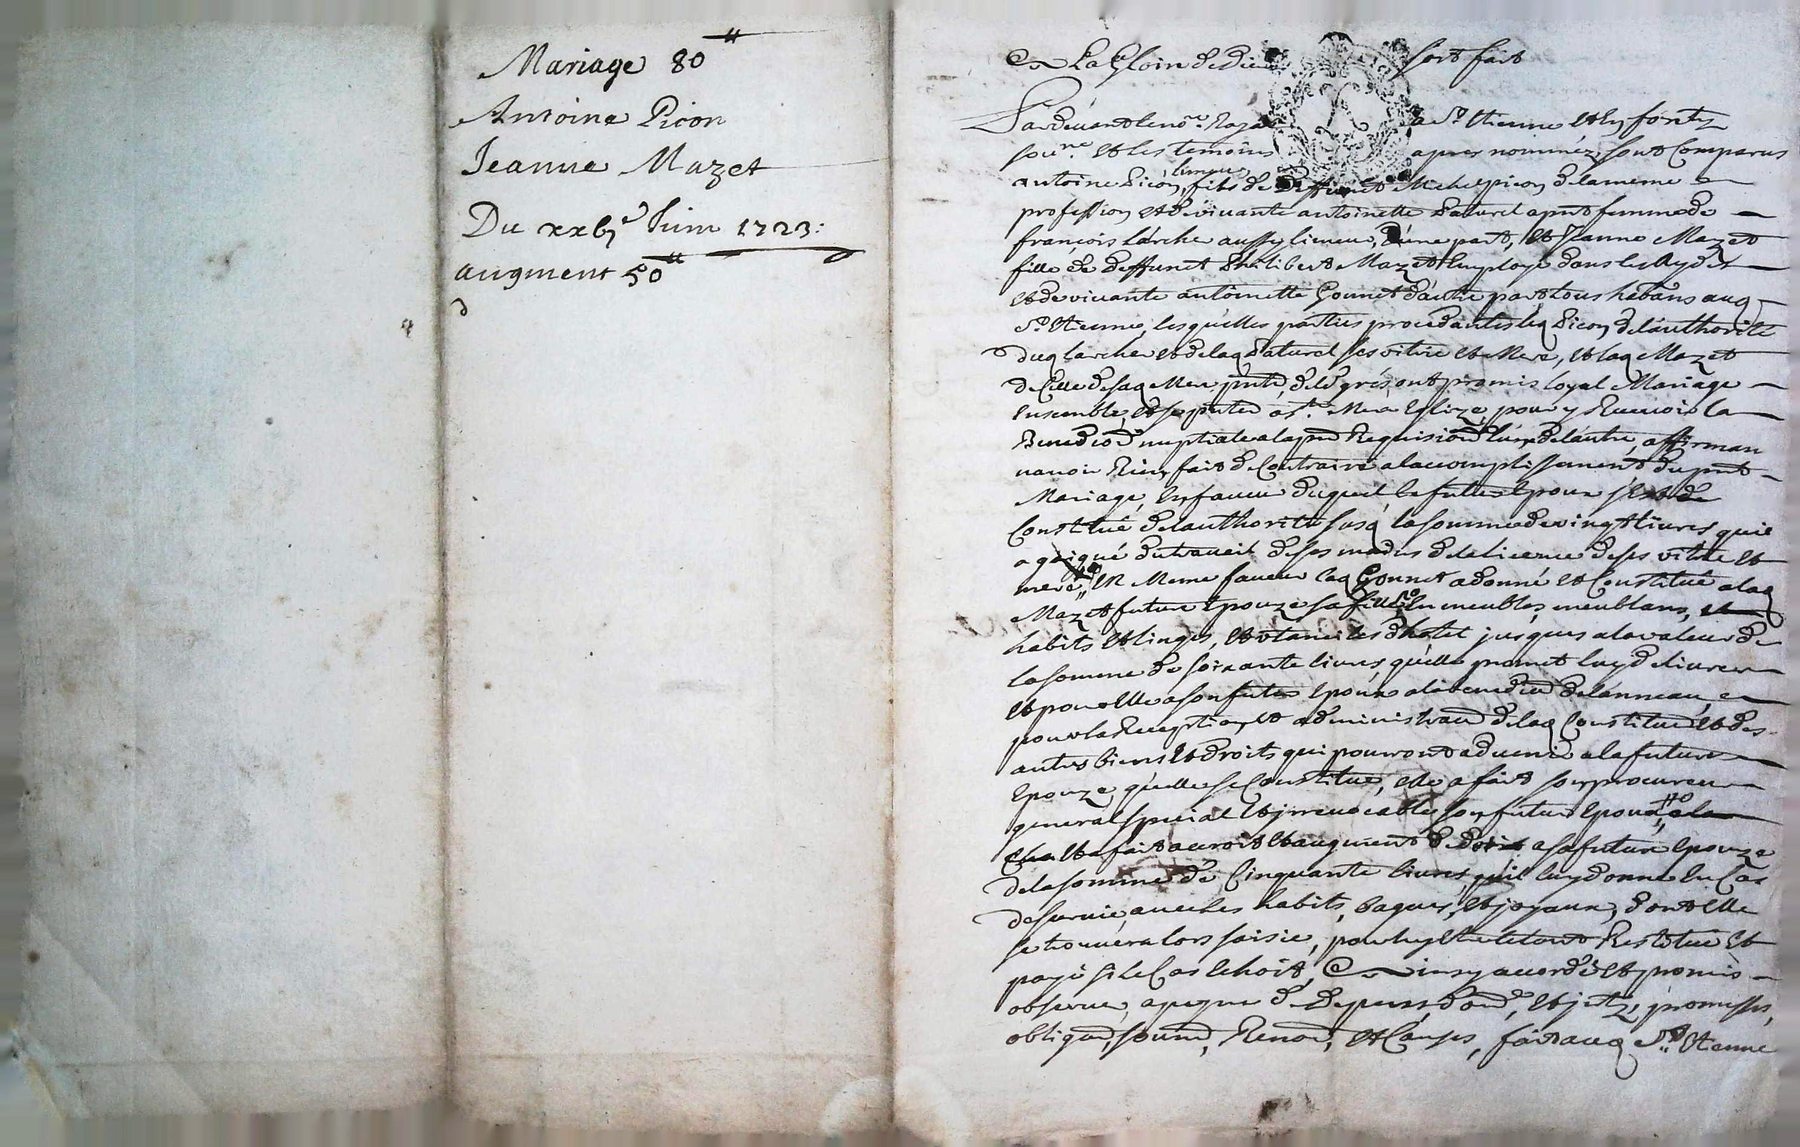 Mariage 80 tt
Antoine Picon
Jeanne Mazet
Du xxbj e Juin 1723:
augment 50 tt
A La Gloire de Dieu soit fait
Pardevant le no.re Royal a S.t Etienne et en foretz
sou.né et les temoins apres nommez, sont Comparus
antoine Picon, limeur fils de deffunct Michel picon de la meme
profession et de vivante antoinette Paturel a pnt femme de
francois Larche aussy limeur, d'une part, et Jeanne Mazet
fille de deffunct Philibert Mazet Employé dans les Aydes
et de vivante antoinette Gonnet d'autre part tous hâbans aud
S.t Etienne, lesquelles parties procedantes led Picon de l'authorité
dud larche et de lad Paturel ses vitric et Mere, et lad Mazet
de Celle de sad Mere pnte, de le' grés ont promis loyal Mariage
Ensemble, et se pnter a S.te Mere Eglize pour y Recevoir la
Benedi.on nuptiale a la p.re Requisi.on de l'un de l'autre, affirman
n'avoir Rien fait de Contraire a l'accomplissement du pnt
Mariage, En faveur duquel le futur Epoux s'est
Constitué de l'authorité susd la somme de vingt livres quil
a du travail de ses mains de la licence de ses vitric et
mere, En Meme faveur lad Gonnet a donné et Constitué a lad
Mazet future Epouze sa fille En meubles, meublans,
habits et linges, et utancilles d'hotel jusques a la valeur de
la somme de soixante livres qu'elle promet luy delivrer
et pour Elle a son futur Epoux a la benedi.on de l'anneau, e
pour la Reception et administra.on de lad Constitu.on et des
autres biens et droits qui pourront advenir a la future
Epouze qu'elle se Constitue, Elle a fait son procureur
general special et jrrevocable son futur Epoux,
et a fait acroit et augment de a sa future Epouze
de la somme de Cinquante livres qu'il luy donne En Cas
de survie, avec les habits, bagues, et joyaux, dont Elle
se trouvera lors saisie, pour luy Etre le tout Restitué Et
payé si le Cas Echoit, Ainsy accordé et promis
observer, a peyne de depens, et jntz, promesses,
obliga.on, soum.on, Renon.on, et Clauses, fait aud S.t Etienne